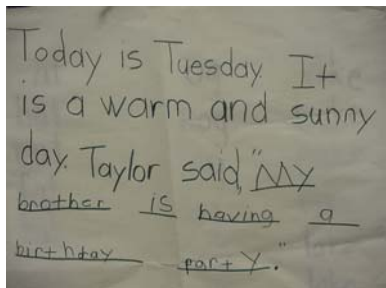 Today is Tuesday. It
is a warm and sunny
day. Taylor said, "My
brother is having a
birthday party."